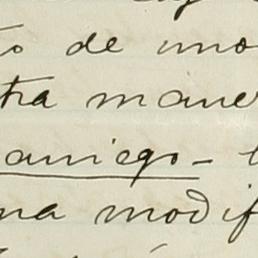 to de uno
tra maner
aniego - l
na modif